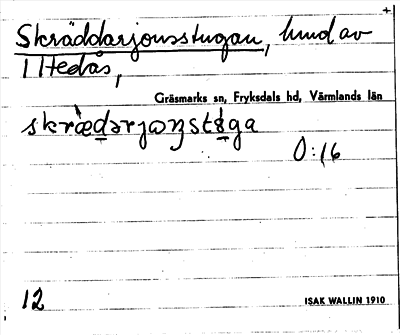 Skräddarjonsstugan, lund av
1 Hedås,
Gräsmarks sn, Fryksdals hd, Värmlands län
0:16
12
ISAK WALLIN 1910